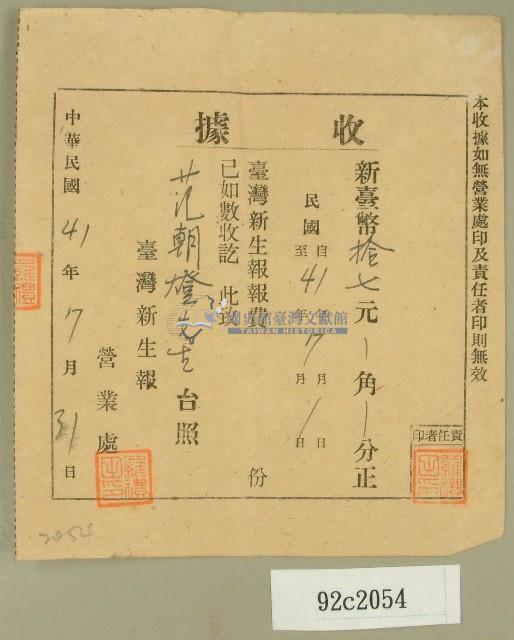 本收據如無營業處印及責任者印則無效
收據
新臺幣拾七元 角 分正
民國 自 41年7月1日
至 年 月 日
臺灣新生報報費 份
已如數收訖 此致
范朝燈先生台照
臺灣新生報
營業處
中華民國41年7月31日
責任者印
國史館臺灣文獻館
TAIWAN HISTORICA
2054
92c2054